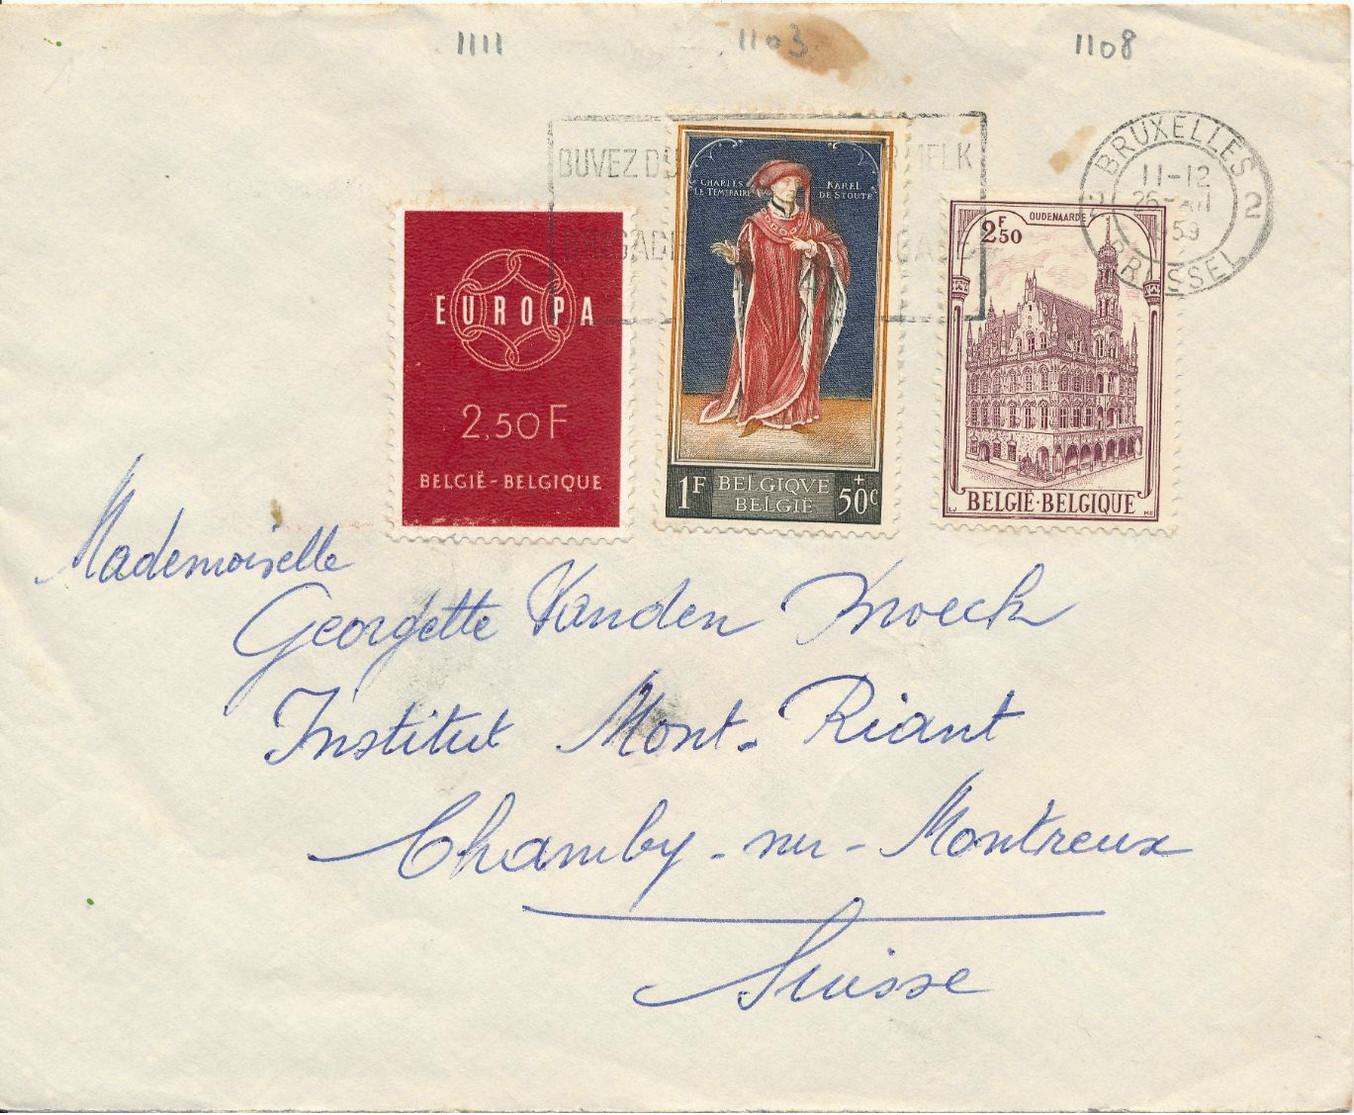 1111 1103 1108
BUVEZ DU MELK
BRIGADE
BRUXELLES
11-12
26-XII
59
2 2
BRUSSEL
EUROPA
2,50F
BELGIË-BELGIQUE
CHARLES LE TEMERAIRE
KAREL DE STOUTE
1F BELGIQVE BELGIË +50c
OUDENAARDE
2F50
BELGIË·BELGIQUE
Mademoiselle
Georgette Vanden
Institut Mont-Riant
Chamby-sur-Montreux
Suisse